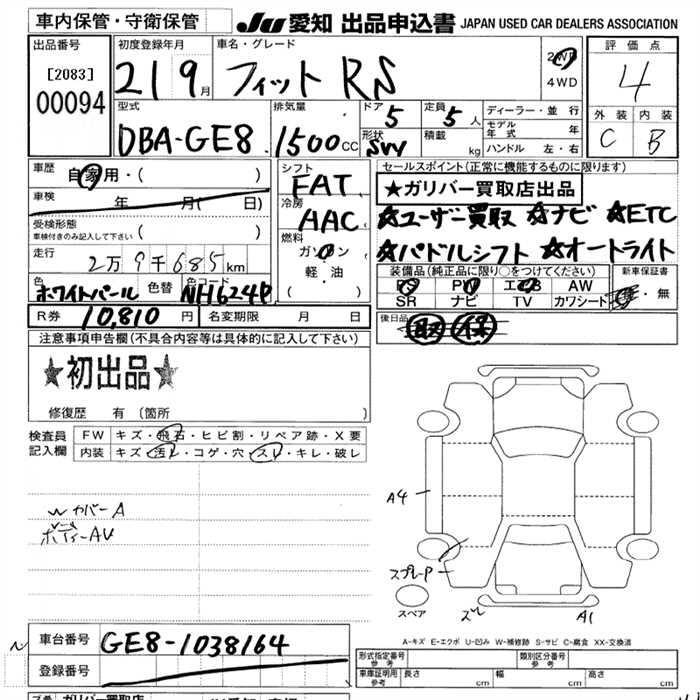 車内保管・守衛保管
JU 愛知 出品申込書 JAPAN USED CAR DEALERS ASSOCIATION
出品番号
[2083]
00094
初度登録年月
21 9月
車名・グレード
フィット RS
2WD
4WD
評価点
4
外装 内装
C B
型式
DBA-GE8
排気量
1500cc
ドア
5
定員
5人
形状
積載
kg
ディーラー・並行
モデル年式 年
ハンドル 左・右
車歴
自家用・( )
車検
年 月( 日)
受検形態
車検付きのみ記入して下さい ( )
走行
2万9千685km
色
ホワイトパール
色替
色コード
NH624P
シフト
FAT
冷房
AAC
燃料
ガソリン
軽・油
( )
セールスポイント(正常に機能するものに限ります)
★ガリバー買取店出品
☆ユーザー買取 ☆ナビ ☆ETC
☆パドルシフト ☆オートライト
装備品(純正品に限り○をつけてください)
PS PW エアB AW
SR ナビ TV カワシート
新車保証書
有・無
後日品
取 保
R券 10,810円
名変期限 月 日
注意事項申告欄(不具合内容等は具体的に記入して下さい)
★初出品★
修復歴 有(箇所 )
検査員記入欄
FW キズ・飛石・ヒビ割・リペア跡・X要
内装 キズ・汚レ・コゲ・穴・スレ・キレ・破レ
カバーA
ボディーAU
A4
スプレーP
スペア
スレ
A1
A-キズ E-エクボ U-凹み W-補修跡 S-サビ C-腐食 XX-交換済
車台番号 GE8-1038164
登録番号
形式指定番号 参考
類別区分番号 参考
車庫証明用 参考
長さ cm
幅 cm
高さ cm
ガリバー買取店